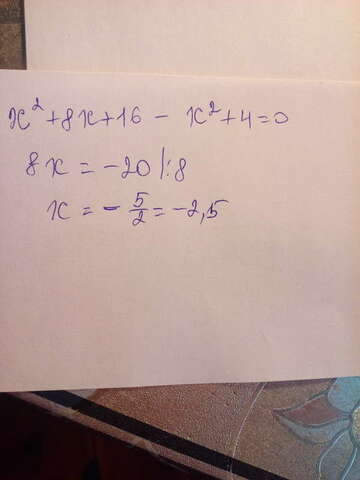 x² + 8x + 16 - x² + 4 = 0
8x = -20 |:8
x = - 5/2 = -2,5